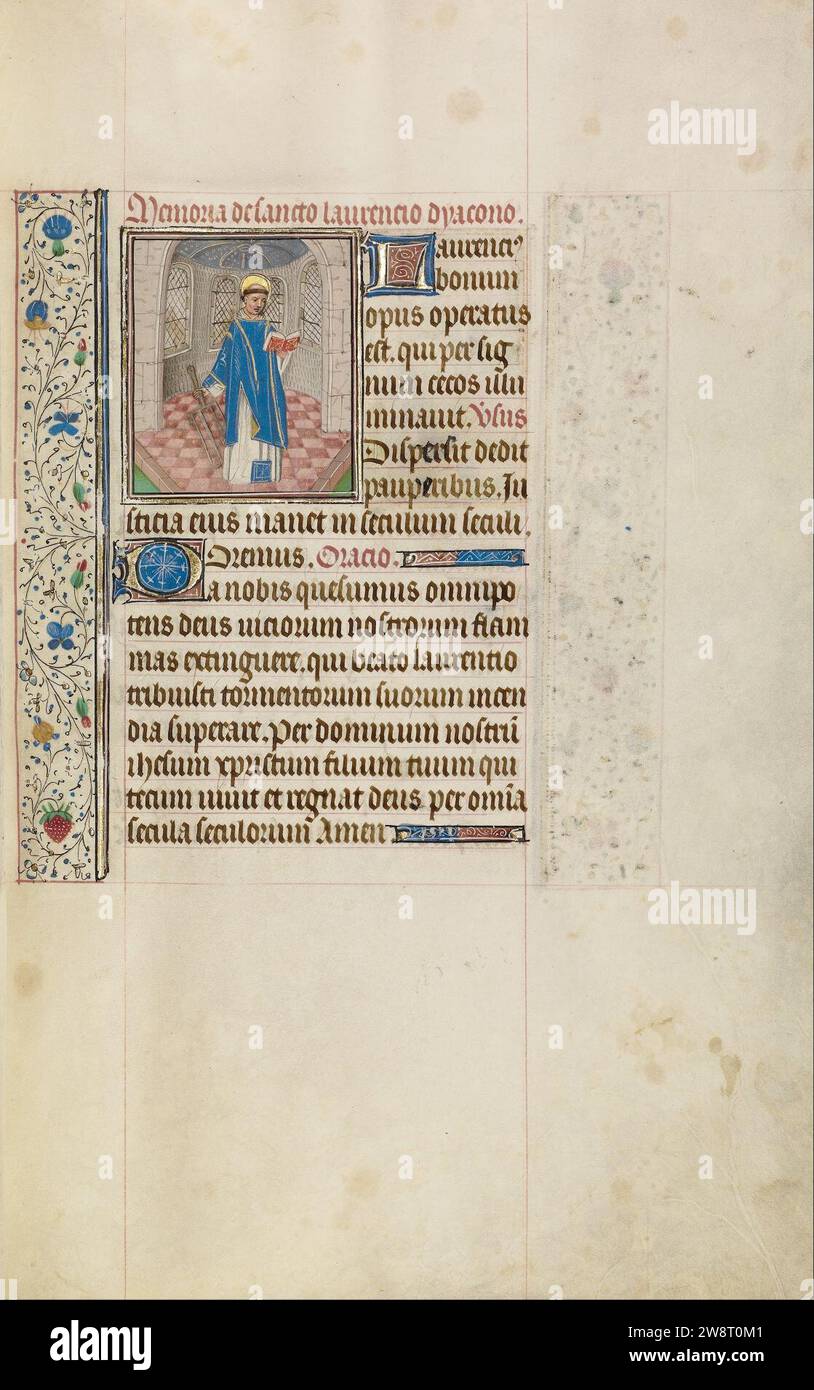 Memoria de sancto laurencio dyacono.
Laurenciꝰ
bonum
opus operatus
est. qui per sig
num cecos illu
minauit. Vsus
Dispersit dedit
pauperibus. Iu
sticia eius manet in seculum seculi.
Oremus. Oracio.
Da nobis quesumus omnipo
tens deus uiciorum nostrorum flam
mas extinguere. qui beato laurentio
tribuisti tormentorum suorum incen
dia superare. Per dominum nostrū
ihesum xpristum filium tuum qui
tecum uiuit et regnat deus per omīa
secula seculorum Amen
alamy
alamy
alamy
Image ID: 2W8T0M1
www.alamy.com